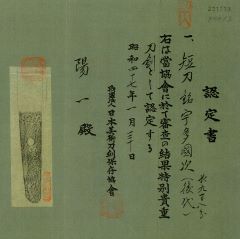 認定書
一、短刀 銘 宇多国次(後代)
長九寸八分
右は當協會に於て審査の結果特別貴重
刀剣として認定する
昭和四十七年一月三十日
財團法人日本美術刀剣保存協會
陽一殿